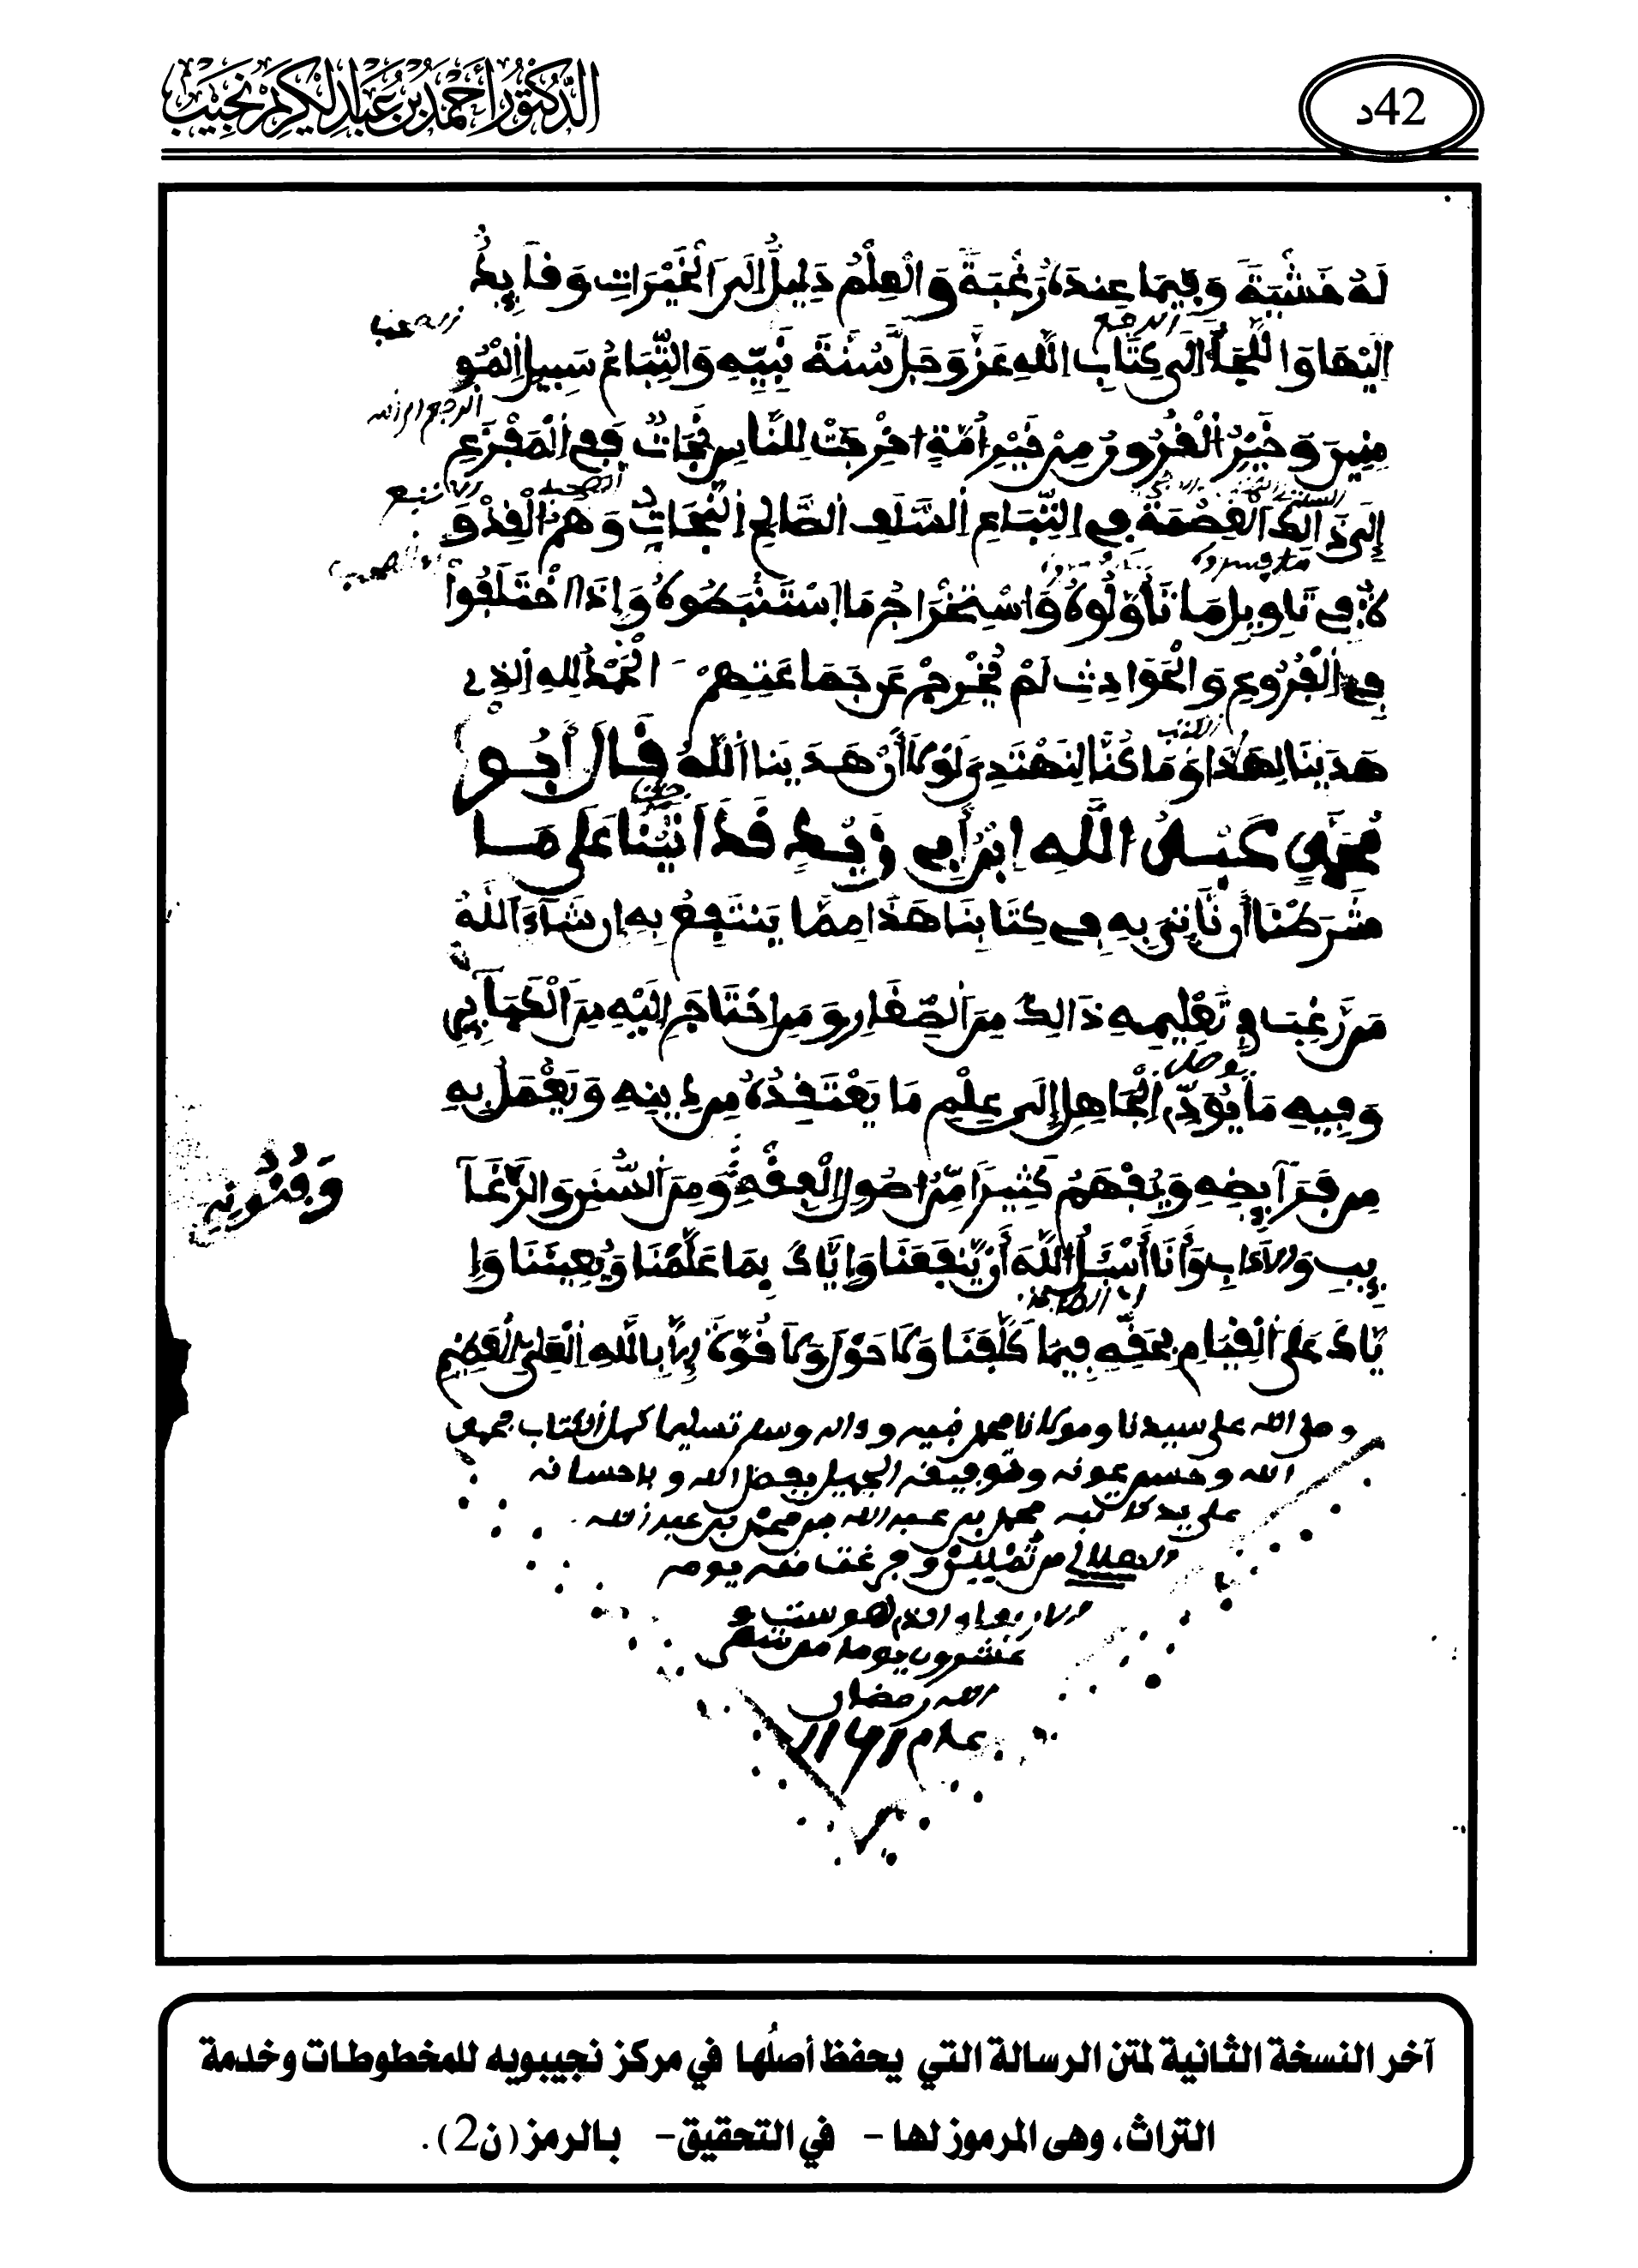 الدكتور أحمد بن عبد الكريم نجيب
42د
لَهُ خَشْيَةً وَفِيمَا عِندَهُ رَغْبَةً وَالْعِلْمُ دَلِيلٌ إِلَى الْخَيْرَاتِ وَقَآيِدٌ
إِلَيْهَا وَاللَّجَأُ إِلَى كِتَابِ اللَّهِ عَزَّ وَجَلَّ سُنَّةِ نَبِيِّهِ وَاتِّبَاعُ سَبِيلِ الْمُو
مِنِينَ وَخَيْرُ الْقُرُونِ مِنْ خَيْرِ أُمَّةٍ اخْرِجَتْ لِلنَّاسِ نَجَاتٌ فَفِي الْمَفْزَعِ
إِلَى ذَالِكَ الْعِصْمَةُ وَفِي اتِّبَاعِ السَّلَفِ الصَّالِحِ النَّجَاتُ وَهُمُ الْقِدْوَ
ةُ فِي تَاوِيلِ مَا تَأَوَّلُوهُ وَاسْتِخْرَاجِ مَا اسْتَنْبَطُوهُ وَإِذَا اخْتَلَفُوا
فِي الْفُرُوعِ وَالْحَوَادِثِ لَمْ يُخْرَجْ عَن جَمَاعَتِهِمْ الْحَمْدُ لِلهِ الذِي
هَدَينَا لِهَذَا وَمَا كُنَّا لِنَهْتَدِيَ لَوْلَا أَنْ هَدَينَا اللَّهُ قَالَ أَبُو
مُحَمَّدٍ عَبْدُ اللَّهِ ابْنُ أَبِي زَيْدٍ قَدْ أَتَيْنَا عَلَى مَا
شَرَطْنَا أَن نَّأْتِيَ بِهِ فِي كِتَابِنَا هَذَا مِمَّا يَنتَفِعُ بِهِ إِن شَآءَ اللَّهُ
مَن رَّغِبَ فِي تَعْلِيمِهِ ذَالِكَ مِنَ الصِّغَارِ وَمَنِ احْتَاجَ إِلَيْهِ مِنَ الْكِبَارِ
وَفِيهِ مَا يُؤَدِّي الْجَاهِلَ إِلَى عِلْمِ مَا يَعْتَقِدُهُ مِن دِينِهِ وَيَعْمَلُ بِهِ
مِن فَرَآيِضِهِ وَيُفْهِمُ كَثِيرًا مِّنْ اصُولِ الْفِقْهِ وَمِنَ السُّنَنِ وَالرَّغَآ
وَفُنُونِهِ
يِبِ وَالآدَابِ وَأَنَا أَسْئَلُ اللَّهَ أَنْ يَّنفَعَنَا وَإِيَّاكَ بِمَا عَلَّمَنَا وَيُعِينَنَا وَإِ
يَّاكَ عَلَى الْقِيَامِ بِحَقِّهِ فِيمَا كَلَّفَنَا وَلَا حَوْلَ وَلَا قُوَّةَ إِلَّا بِاللَّهِ الْعَلِيِّ الْعَظِيمِ
وصلى الله على سيدنا ومولانا محمد نبيه وءاله وسلم تسليما كمل الكتاب بحمد
الله وحسن عونه وتوفيقه الجميل بفضل الله وإحسانه
على يد كاتبه محمد بن عبد الله بن محمد بن عبد الله
عشرون يوما من شهر
الله رمضان
عام 1161
آخر النسخة الثانية لمتن الرسالة التي يحفظ أصلُها في مركز نجيبويه للمخطوطات وخدمة
التراث، وهى المرموز لها - في التحقيق- بالرمز (ن2).